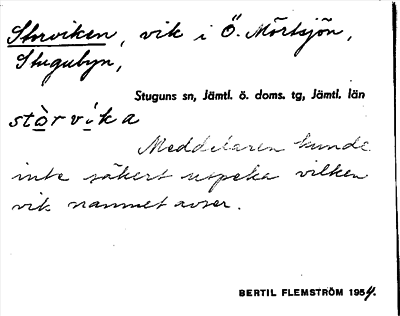 Storviken, vik i Ö. Mörtsjön,
Stugubyn,
Stuguns sn, Jämtl. ö. doms. tg, Jämtl. län
stòrvika
Meddelaren kunde
inte säkert uppeka vilken
vik namnet avser.
BERTIL FLEMSTRÖM 1954.